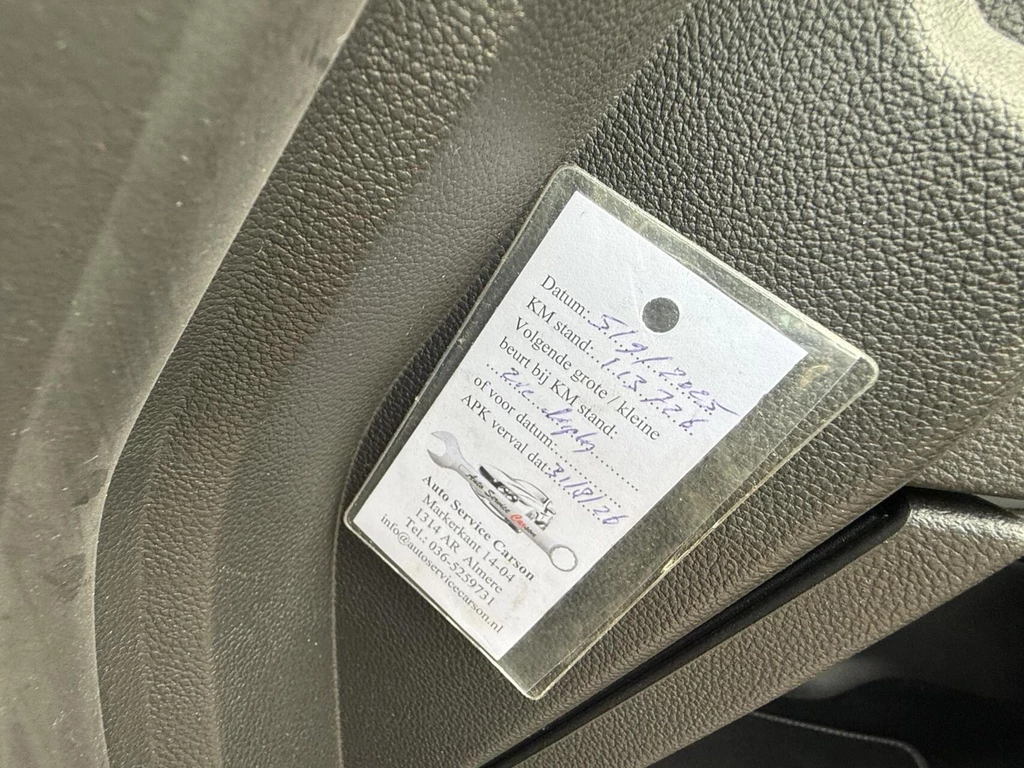 Datum: 5/9/2025
KM stand: 113.726
Volgende grote / kleine
beurt bij KM stand:
...zie display...........
of voor datum:................
APK verval dat: 31/8/26
Auto Service Carson
Auto Service Carson
Markerkant 14-04
1314 AR Almere
Tel.: 036-5259731
info@autoservicecarson.nl